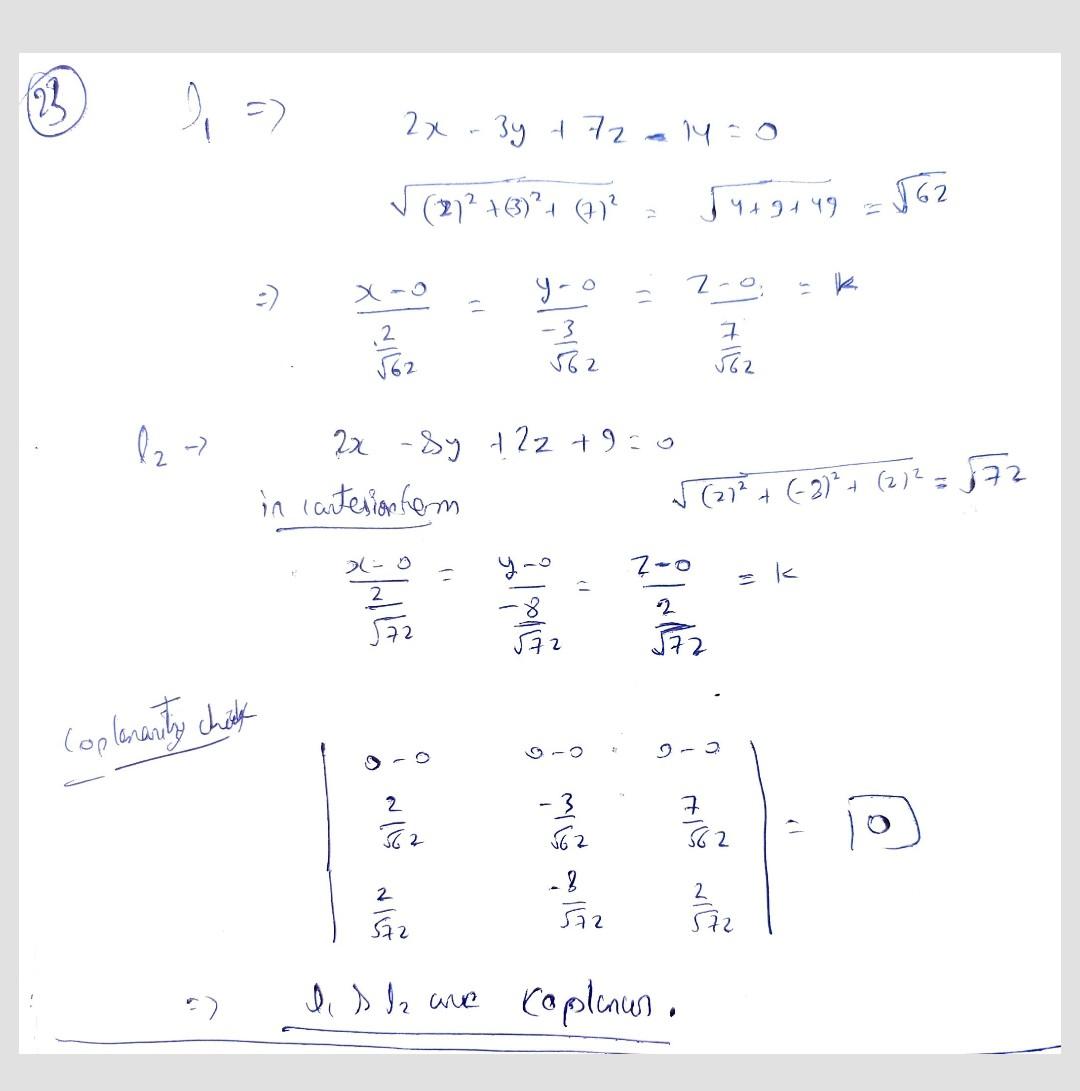 23
l₁ => 2x - 3y + 7z - 14 = 0
√(2)² + (3)² + (7)² = √4+9+49 = √62
=> x-0 / (2/√62) = y-0 / (-3/√62) = z-0 / (7/√62) = k
l₂ → 2x - 8y + 2z + 9 = 0
in cartesian form √(2)² + (-8)² + (2)² = √72
x-0 / (2/√72) = y-0 / (-8/√72) = z-0 / (2/√72) = k
Coplanarity check
| 0-0 0-0 0-0 |
| 2/√62 -3/√62 7/√62 | = 0
| 2/√72 -8/√72 2/√72 |
=> l₁ & l₂ are coplanar.